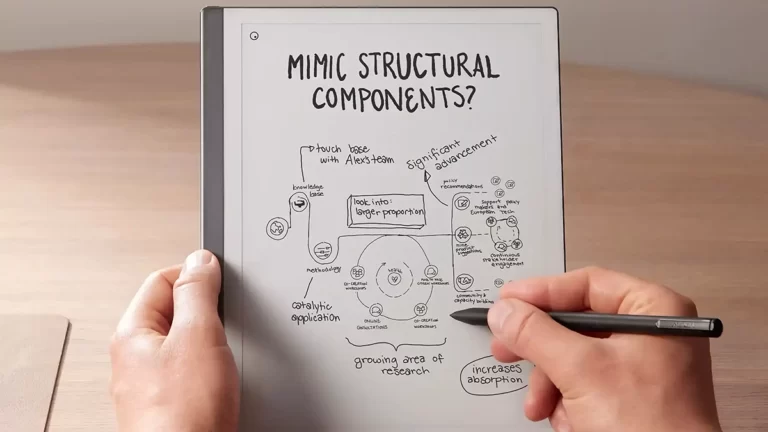 MIMIC STRUCTURAL
COMPONENTS?
touch base
with Alex's team
significant
advancement
knowledge
base
policy
recommendations
look into:
larger proportion
support policy
makers and
European Tech
methodology
continuous
stakeholder
engagement
CO-CREATION
WORKSHOPS
community &
capacity building
catalytic
application
ONLINE
CONSULTATIONS
CO-CREATION
WORKSHOPS
growing area of
research
increases
absorption